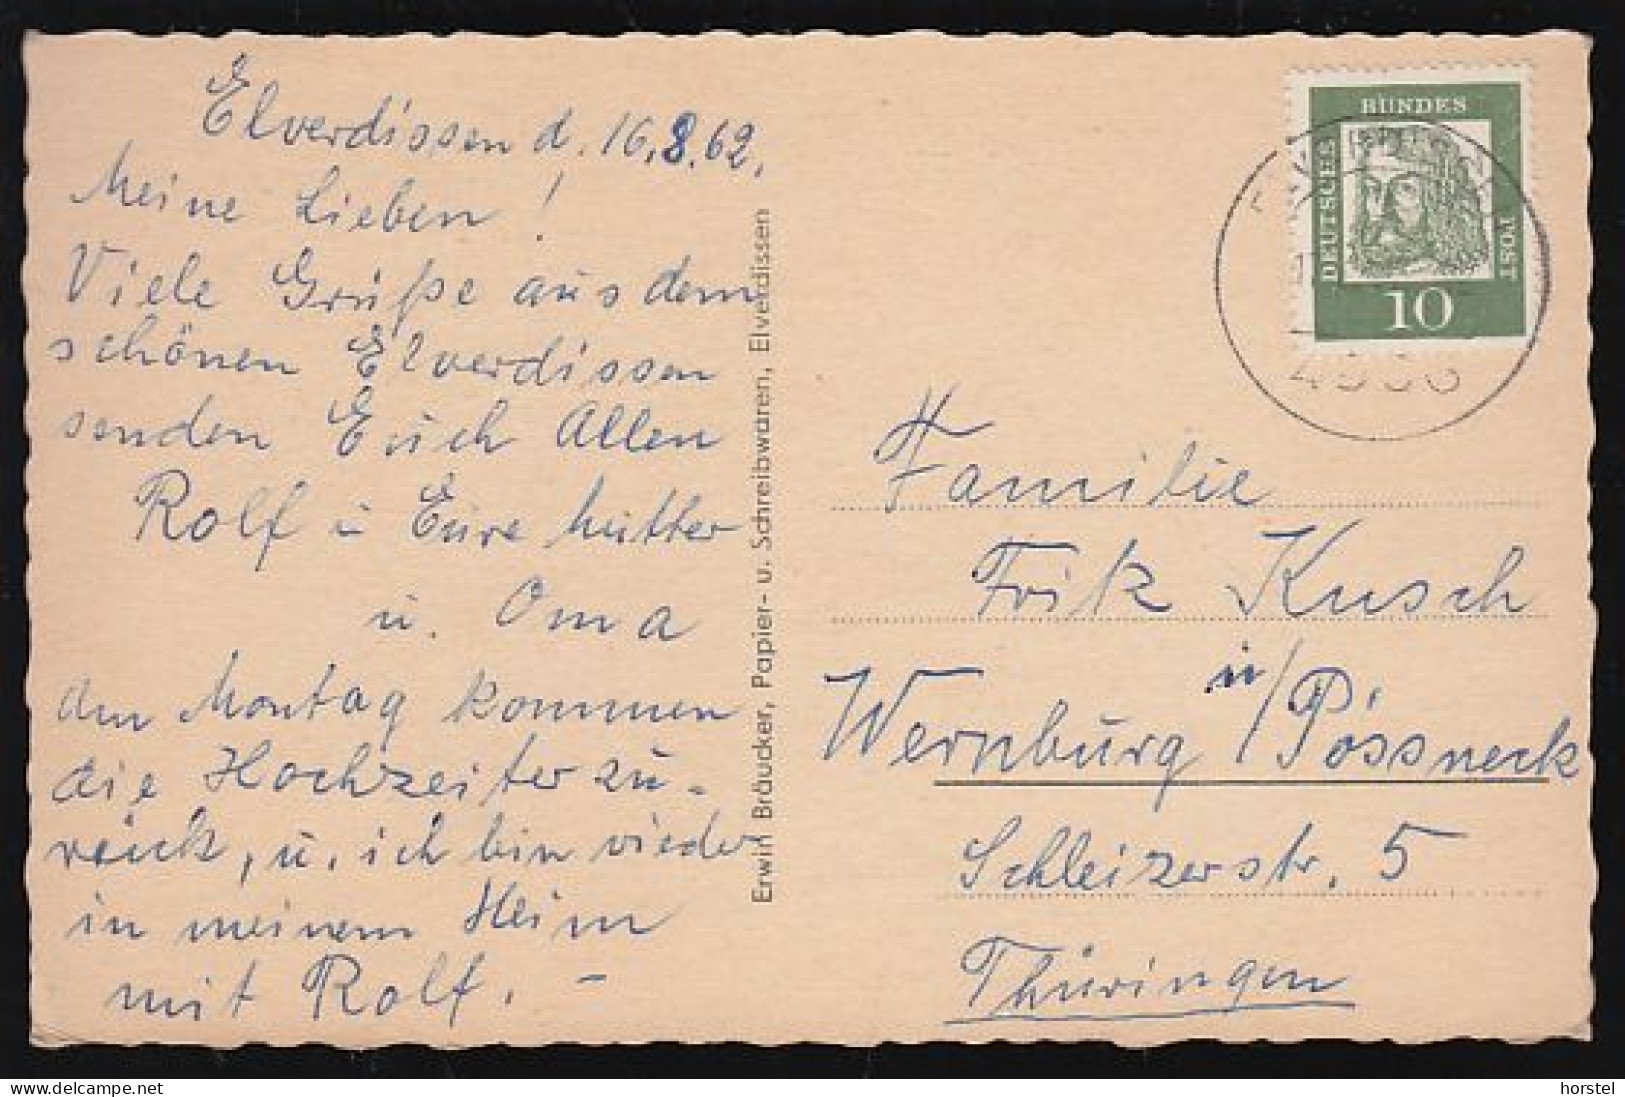 Elverdissen d. 16.8.62.
Meine Lieben!
Viele Grüße aus dem
schönen Elverdissen
senden Euch Allen
Rolf u Eure Mutter
u. Oma
am Montag kommen
die Hochzeiter zu-
rück, u. ich bin wieder
in meinem Heim
mit Rolf. –
Erwin Bräucker, Papier- u. Schreibwaren, Elverdissen
BUNDES
DEUTSCHE
POST
10
Familie
Frik Kusch
in
Wernburg / Pössneck
Schleizerstr. 5
Thüringen
delcampe.net
horstel